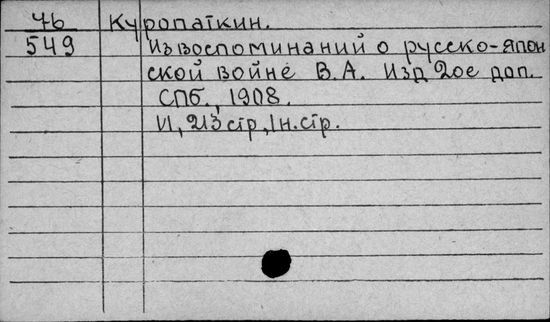 76 Куропаткин.
549 Из воспоминаний о русско-япон
ской войне В.А. Изд 2ое доп.
СПб., 1908.
II, 213 стр., 1 н. стр.